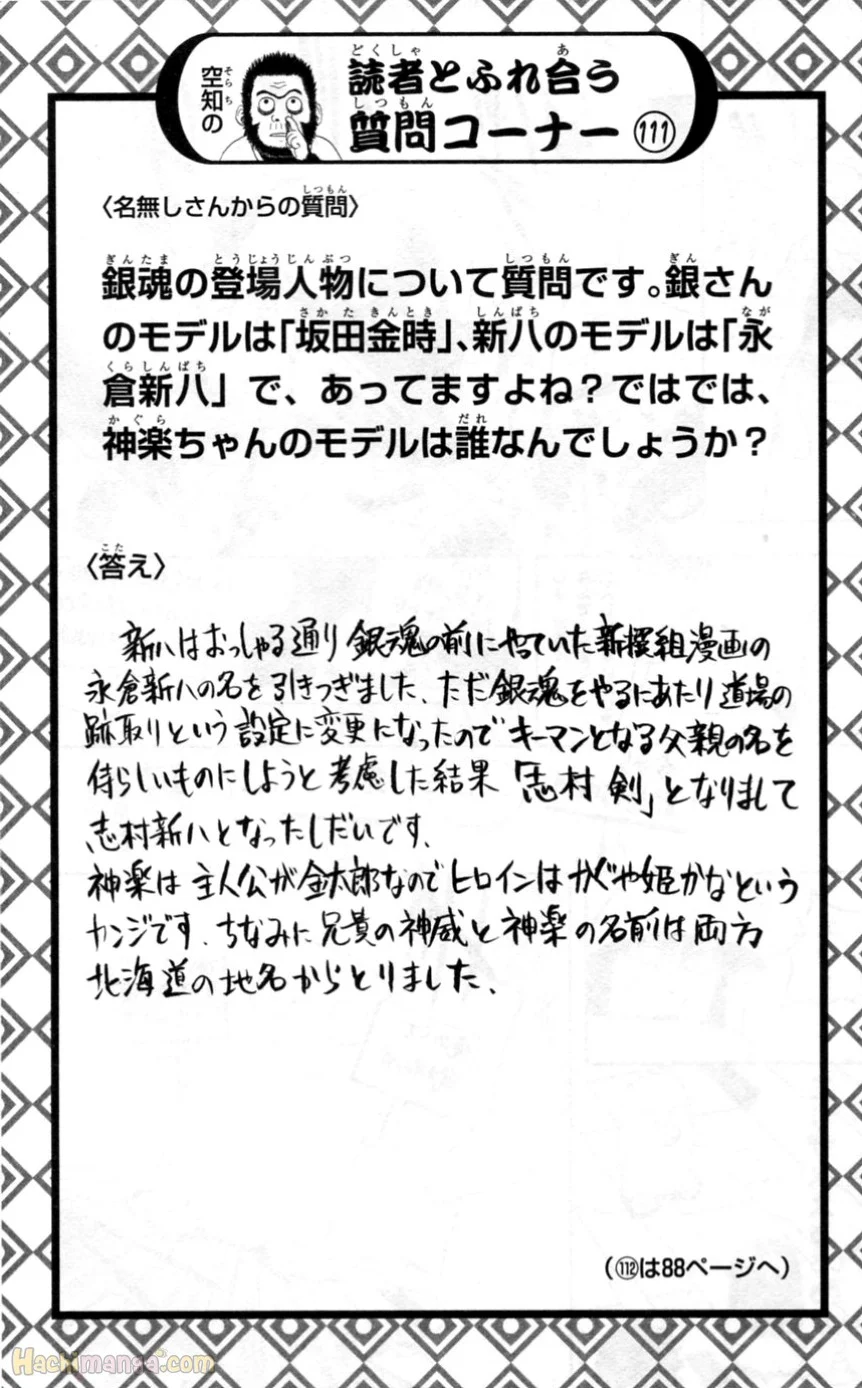 空知の
読者とふれ合う
質問コーナー 111
〈名無しさんからの質問〉
銀魂の登場人物について質問です。銀さん
のモデルは「坂田金時」、新八のモデルは「永
倉新八」で、あってますよね？ではでは、
神楽ちゃんのモデルは誰なんでしょうか？
〈答え〉
新八はおっしゃる通り銀魂の前にやっていた新撰組漫画の
永倉新八の名を引きつぎました、ただ銀魂をやるにあたり道場の
跡取りという設定に変更になったのでキーマンとなる父親の名を
侍らしいものにしようと考慮した結果「志村 剣」となりまして
志村新八となったしだいです、
神楽は主人公が金太郎なのでヒロインはかぐや姫かなという
カンジです、ちなみに兄貴の神威と神楽の名前は両方
北海道の地名からとりました、
（112は88ページへ）
Hachimanga.com